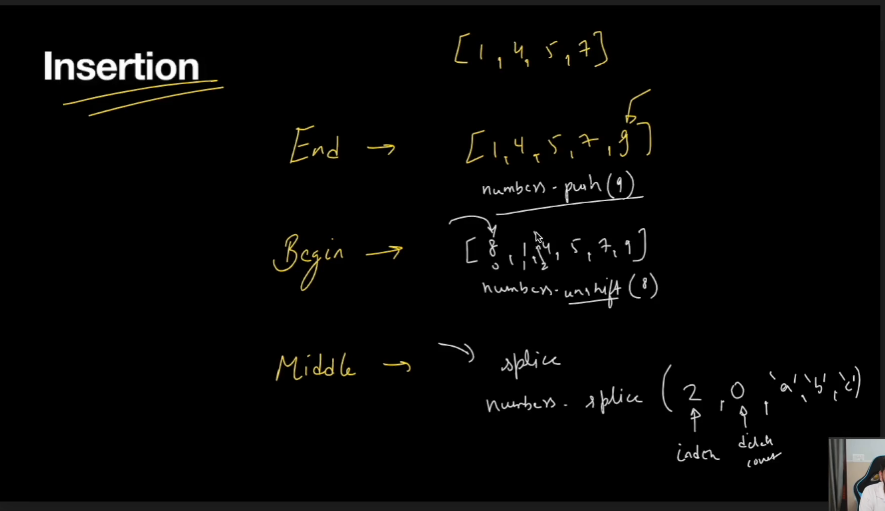 Insertion
[1, 4, 5, 7]
End → [1, 4, 5, 7, 9]
numbers.push(9)
Begin → [8, 1, 4, 5, 7, 9]
0 1 2
numbers.unshift(8)
Middle → splice
numbers.splice(2, 0, 'a', 'b', 'c')
index
count